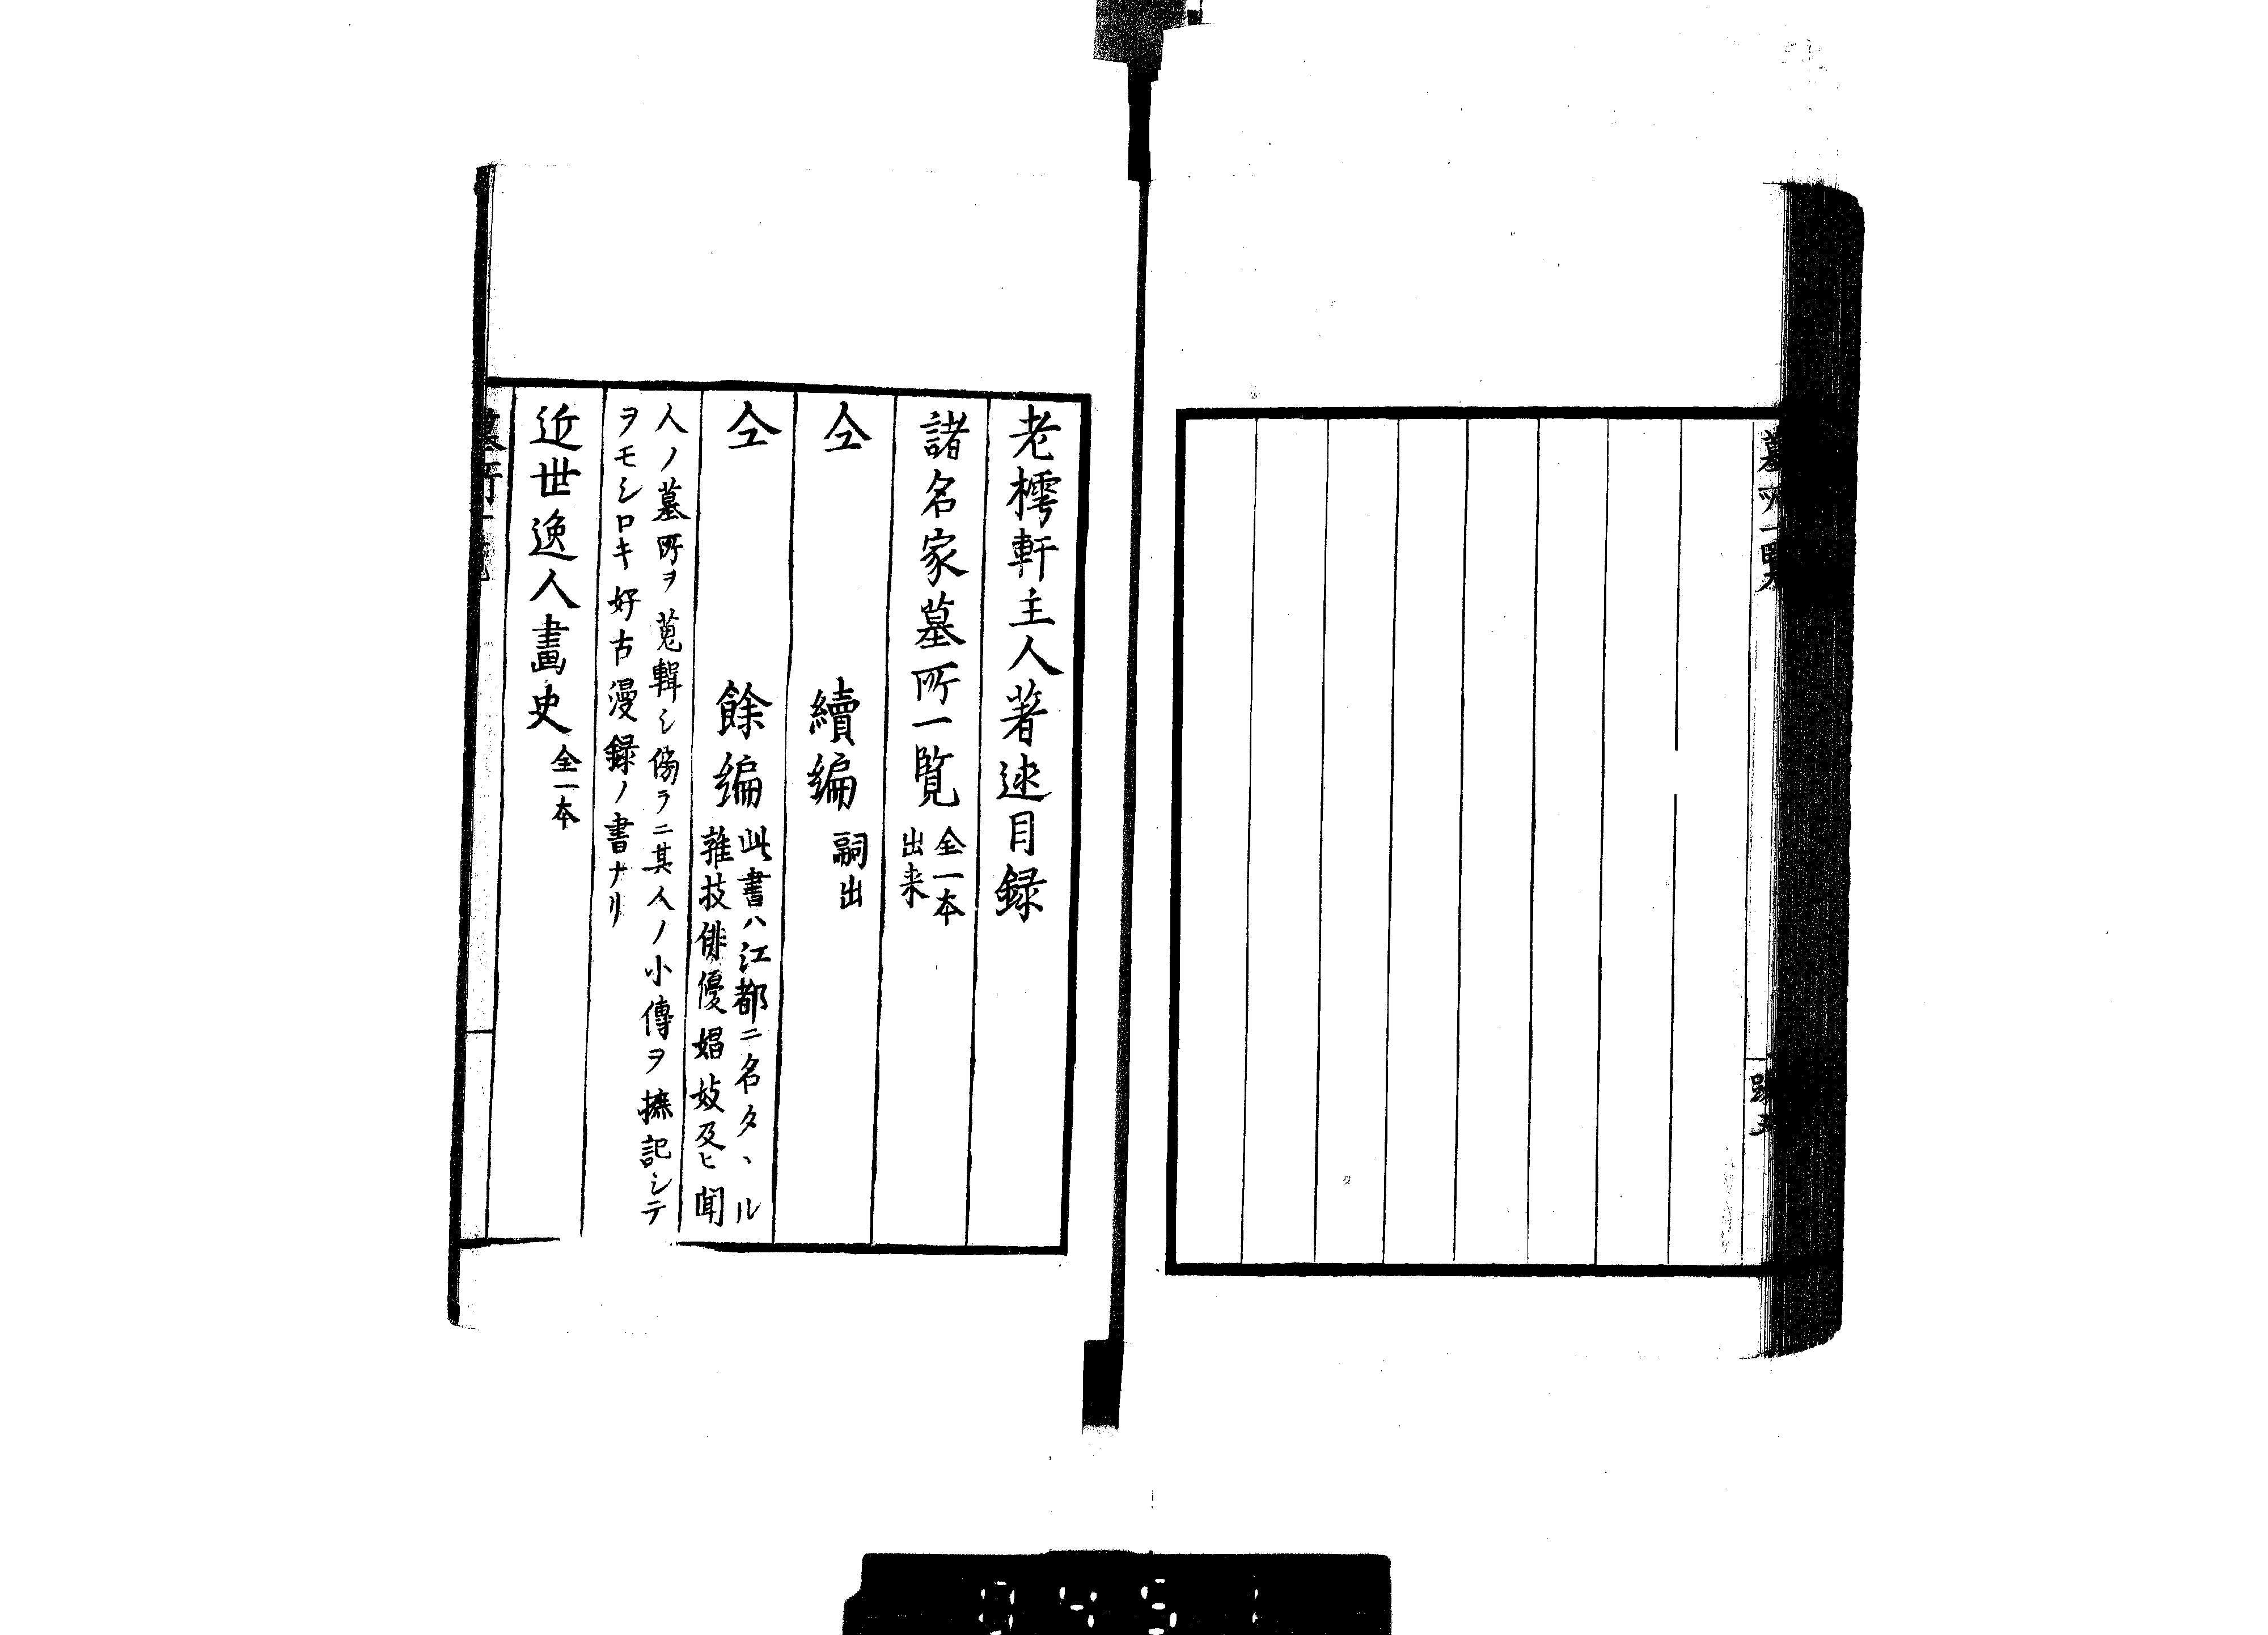 墓所一覧
老樗軒主人著述目録
諸名家墓所一覧 全一本
出来
仝 續編 嗣出
仝 餘編 此書ハ江都ニ名タヽル
雜技俳優娼妓及ヒ聞
人ノ墓所ヲ蒐輯シ傍ラニ其人ノ小傳ヲ摭記シテ
ヲモシロキ好古漫録ノ書ナリ
近世逸人畫史 全一本
墓所一覧